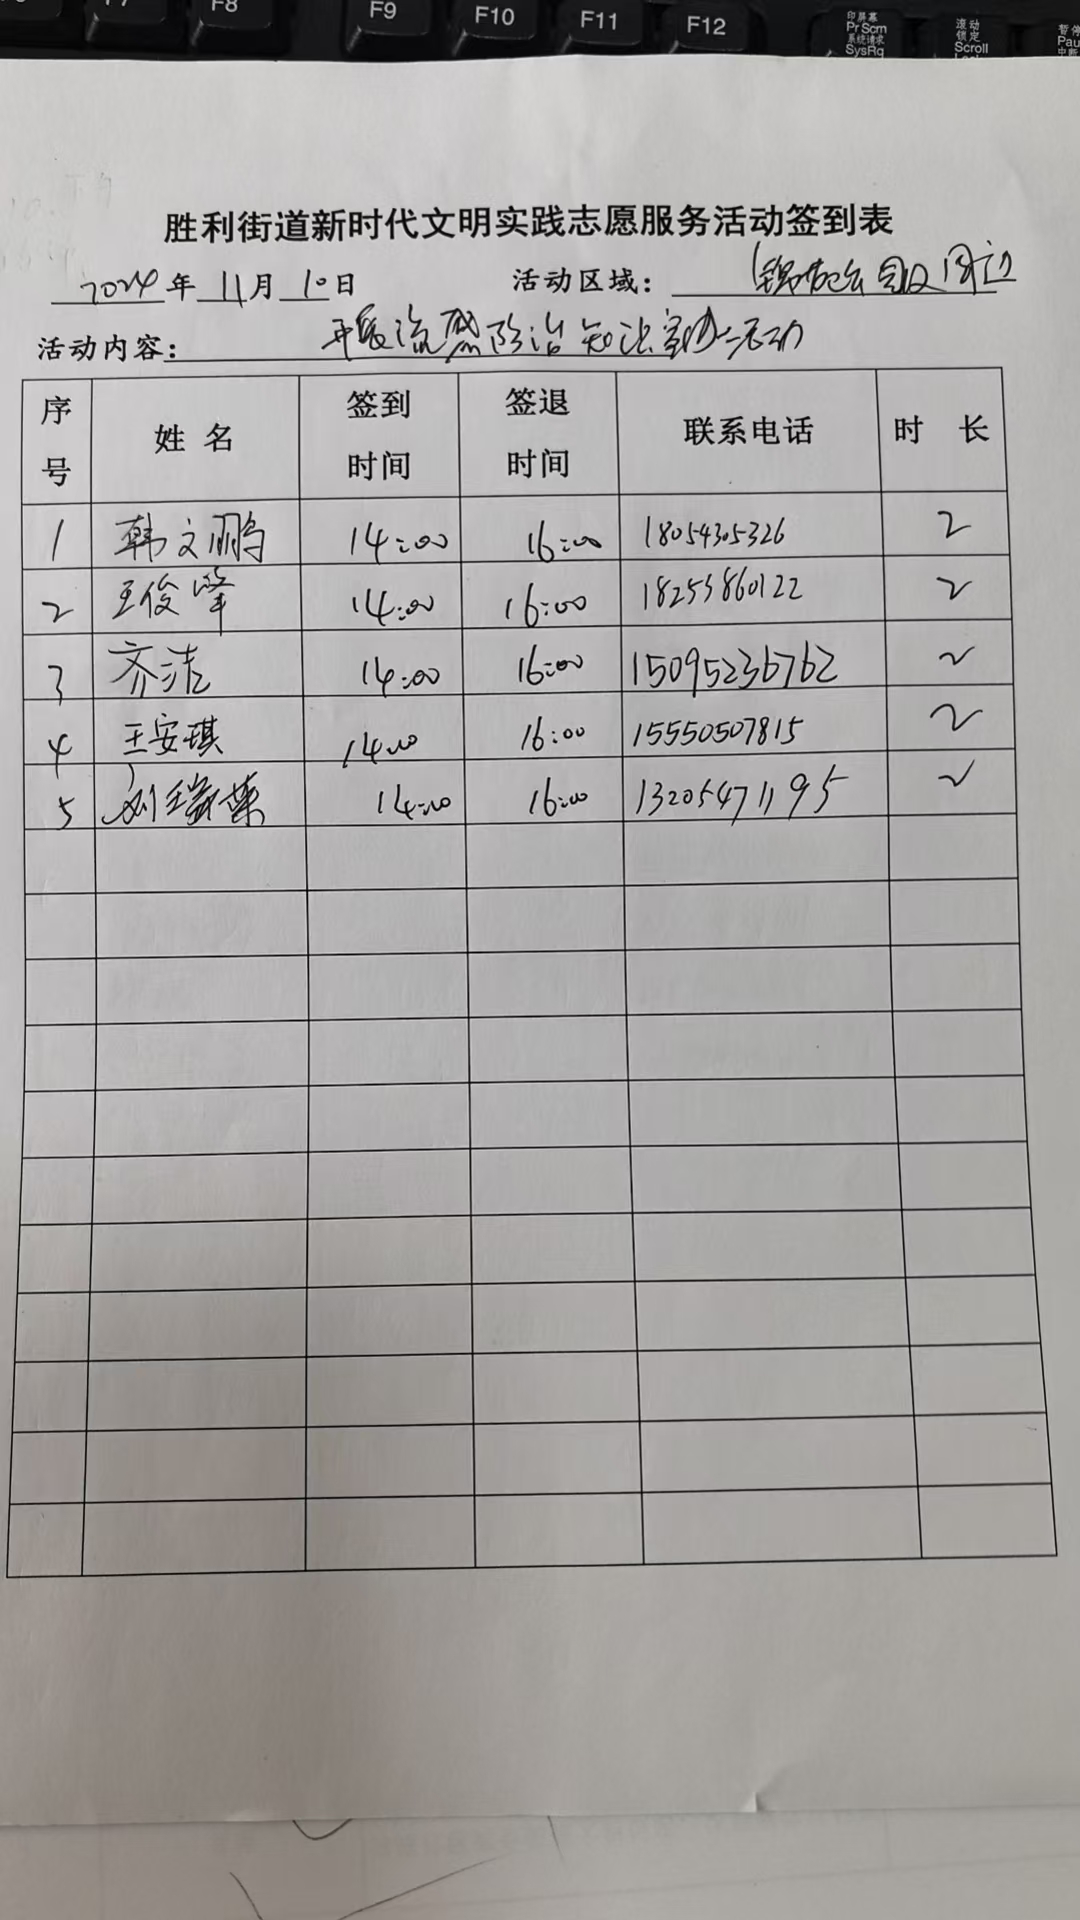 F8 F9 F10 F11 F12 印屏幕 PrScm 系统请求 SysRq 滚动 锁定 Scroll
胜利街道新时代文明实践志愿服务活动签到表
2024年11月10日 活动区域: 周边
活动内容: 开展流感防治知识宣传活动
序号 姓名 签到时间 签退时间 联系电话 时长
1 韩文鹏 14:00 16:00 18054305326 2
2 王俊峰 14:00 16:00 18253860122 2
3 齐洁 14:00 16:00 15095236762 2
4 王安琪 14:00 16:00 15550507815 2
5 刘瑞英 14:00 16:00 13205471195 2